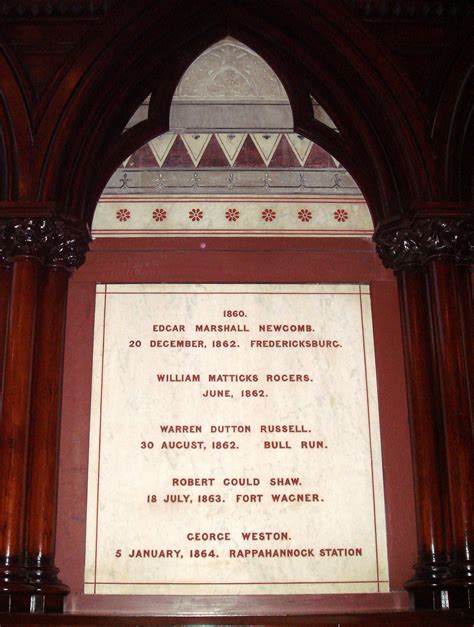 1860.
EDGAR MARSHALL NEWCOMB.
20 DECEMBER, 1862. FREDERICKSBURG.
WILLIAM MATTICKS ROGERS.
JUNE, 1862.
WARREN DUTTON RUSSELL.
30 AUGUST, 1862. BULL RUN.
ROBERT GOULD SHAW.
18 JULY, 1863. FORT WAGNER.
GEORGE WESTON.
5 JANUARY, 1864. RAPPAHANNOCK STATION